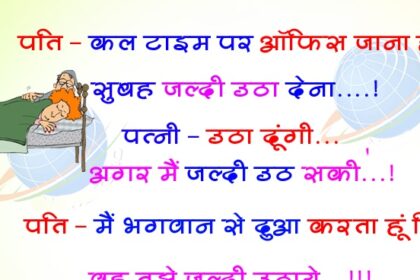 पति – कल टाइम पर ऑफिस जाना
सुबह जल्दी उठा देना....!
पत्नी – उठा दूंगी...
अगर मैं जल्दी उठ सकी...!
पति – मैं भगवान से दुआ करता हूं
वह तुझे जल्दी उठाये...!!!